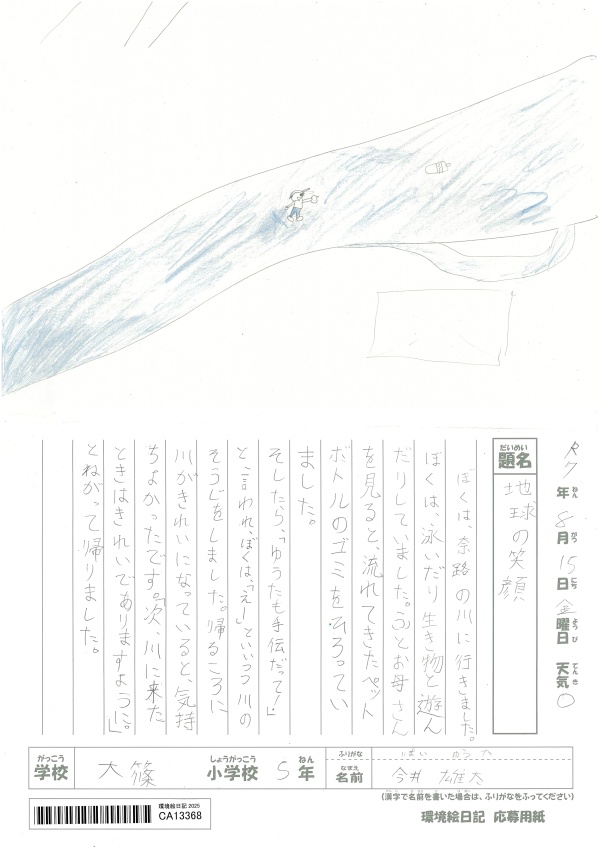 R7年ねん 8月がつ 15日にち 金曜日ようび 天気てんき ○
題名だいめい 地球の笑顔
ぼくは、奈路の川に行きました。
ぼくは、泳いだり生き物と遊ん
だりしていました。ふとお母さん
を見ると、流れてきたペット
ボトルのゴミをひろってい
ました。
そしたら、「ゆうたも手伝だって！」
と言われ、ぼくは、「え！」といいつつ川の
そうじをしました。帰るころに
川がきれいになっていると、気持
ちよかったです。「次、川に来た
ときはきれいでありますように。」
とねがって帰りました。
学校がっこう 大篠 小学校しょうがっこう 5年ねん
ふりがな ゆうた
名前なまえ 今井 雄太
(漢字で名前を書いた場合は、ふりがなをふってください)
環境絵日記 2025
CA13368
環境絵日記 応募用紙